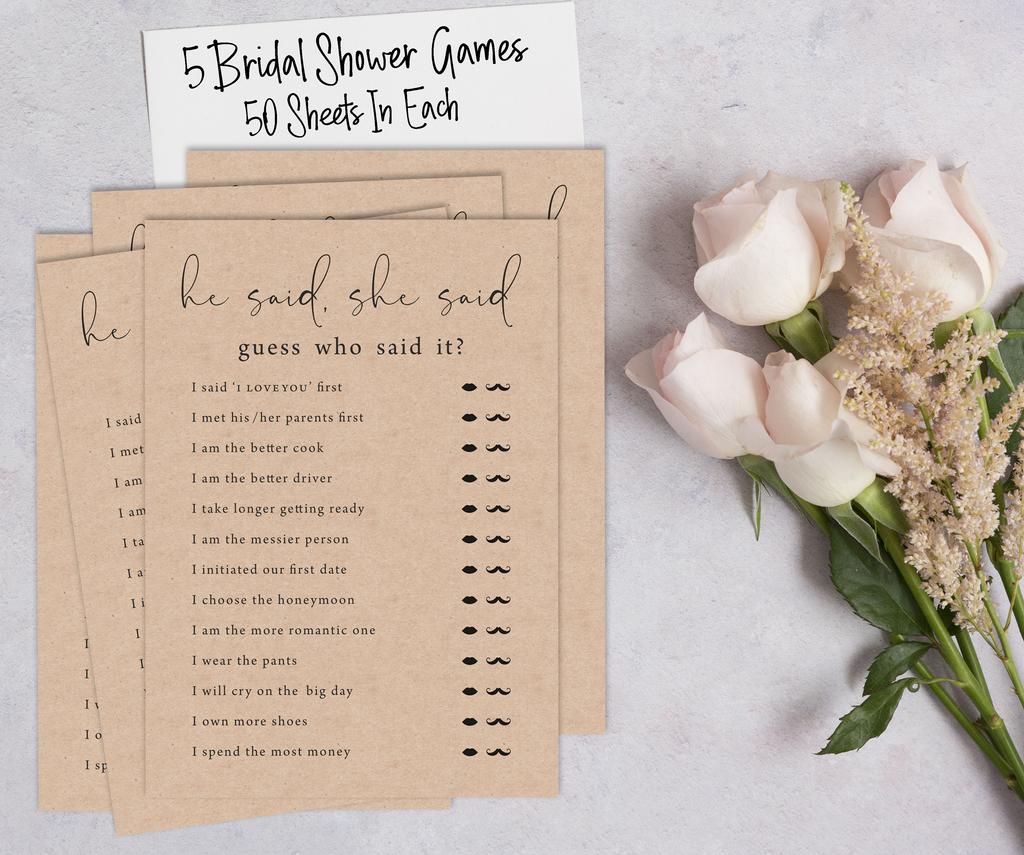 5 Bridal Shower Games
50 Sheets In Each
he said, she said
guess who said it?
I said ‘I LOVE YOU’ first
I met his/her parents first
I am the better cook
I am the better driver
I take longer getting ready
I am the messier person
I initiated our first date
I choose the honeymoon
I am the more romantic one
I wear the pants
I will cry on the big day
I own more shoes
I spend the most money
he
I said
I met
I am
I am